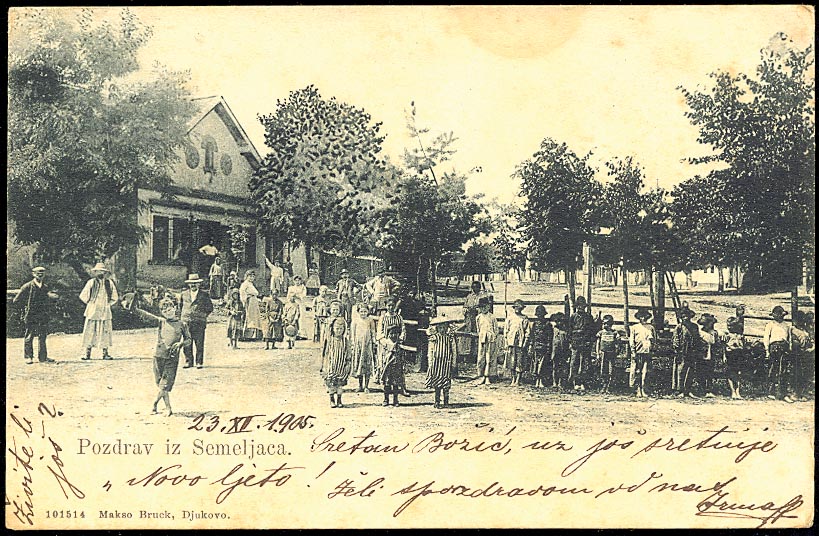 23.XII.1905.
Pozdrav iz Semeljaca. Sretan Božić, uz još sretnije
„Novo ljeto! Želi spozdravom od nas
Živite li
još?
101514 Makso Bruck, Djakovo.